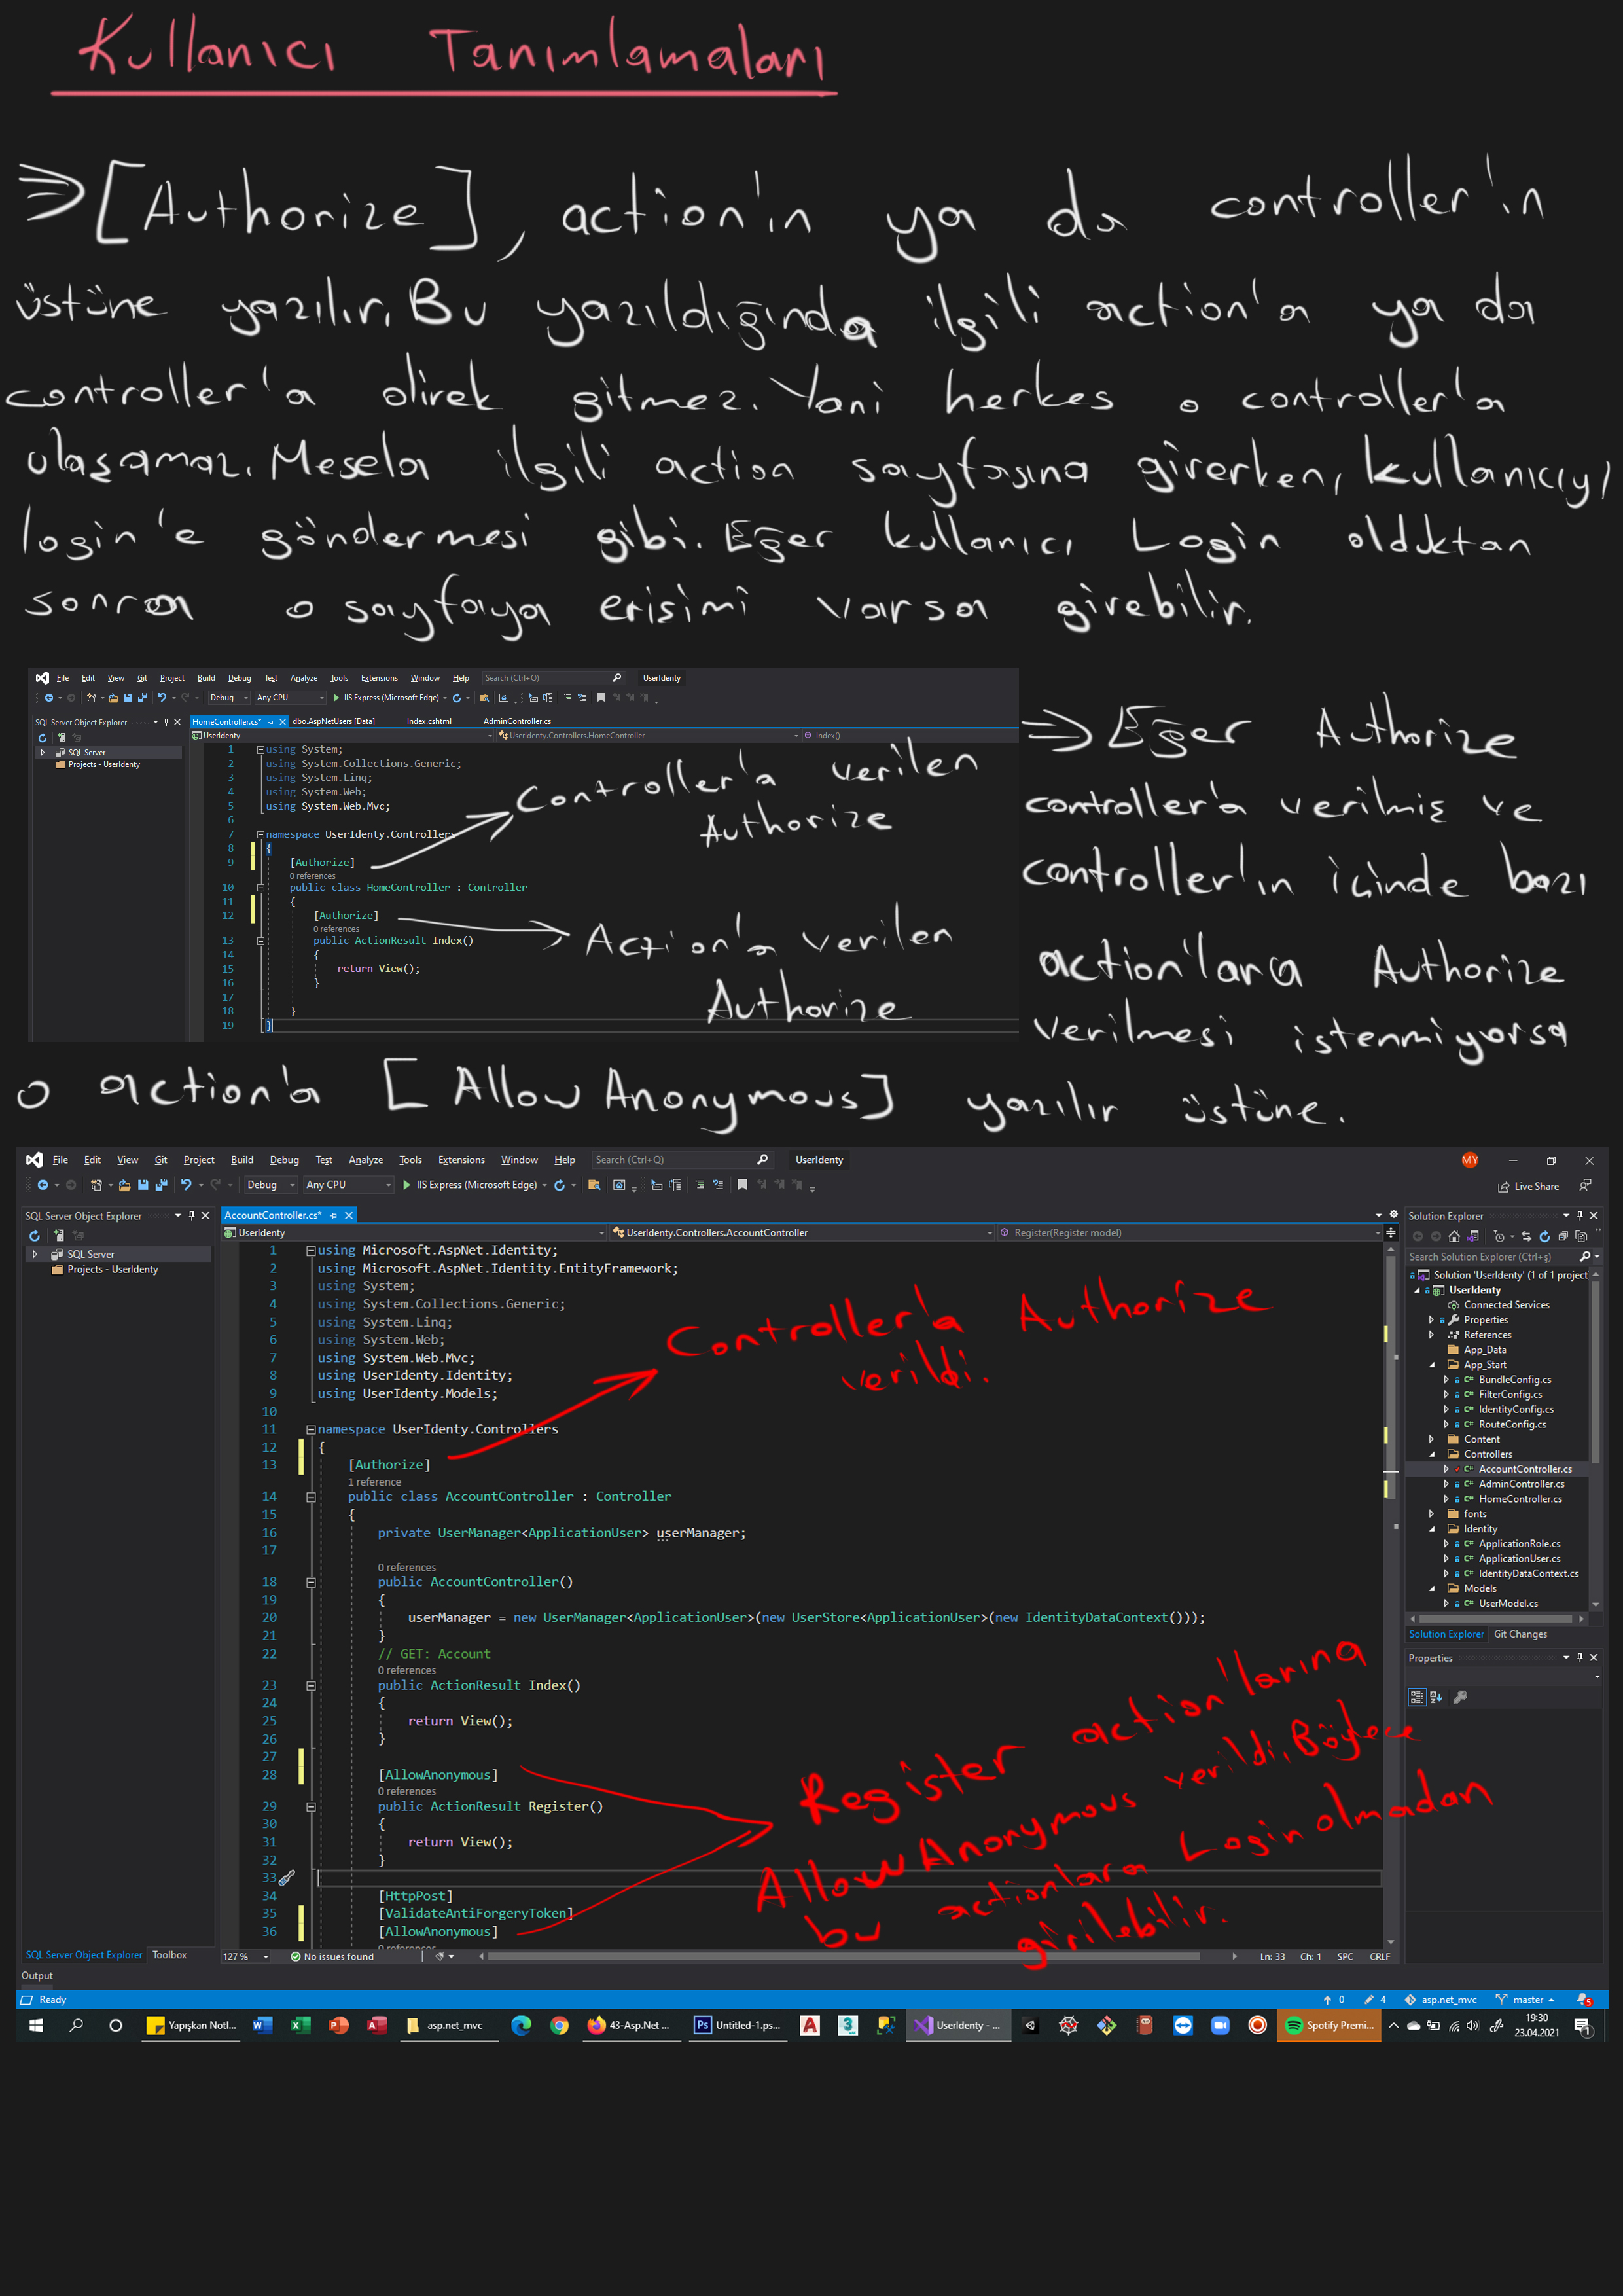 Kullanıcı Tanımlamaları
⇒[Authorize], action'ın ya da controller'ın
üstüne yazılır. Bu yazıldığında ilgili action'a ya da
controller'a direk gitmez. Yani herkes o controller'a
ulaşamaz. Mesela ilgili action sayfasına girerken, kullanıcıyı
login'e göndermesi gibi. Eğer kullanıcı Login olduktan
sonra o sayfaya erişimi varsa girebilir.
File Edit View Git Project Build Debug Test Analyze Tools Extensions Window Help Search (Ctrl+Q) UserIdenty
Debug Any CPU IIS Express (Microsoft Edge)
SQL Server Object Explorer
SQL Server
Projects - UserIdenty
HomeController.cs* dbo.AspNetUsers [Data] Index.cshtml AdminController.cs
UserIdenty UserIdenty.Controllers.HomeController Index()
1 using System;
2 using System.Collections.Generic;
3 using System.Linq;
4 using System.Web;
5 using System.Web.Mvc;
6
7 namespace UserIdenty.Controllers
8 {
9 [Authorize]
0 references
10 public class HomeController : Controller
11 {
12 [Authorize]
0 references
13 public ActionResult Index()
14 {
15 return View();
16 }
17
18 }
19 }
Controller'a verilen
Authorize
Action'a verilen
Authorize
⇒ Eğer Authorize
controller'a verilmiş ve
controller'ın içinde bazı
action'lara Authorize
verilmesi istenmiyorsa
o action'a [AllowAnonymous] yazılır üstüne.
File Edit View Git Project Build Debug Test Analyze Tools Extensions Window Help Search (Ctrl+Q) UserIdenty MY
Debug Any CPU IIS Express (Microsoft Edge) Live Share
SQL Server Object Explorer
SQL Server
Projects - UserIdenty
AccountController.cs*
UserIdenty UserIdenty.Controllers.AccountController Register(Register model)
1 using Microsoft.AspNet.Identity;
2 using Microsoft.AspNet.Identity.EntityFramework;
3 using System;
4 using System.Collections.Generic;
5 using System.Linq;
6 using System.Web;
7 using System.Web.Mvc;
8 using UserIdenty.Identity;
9 using UserIdenty.Models;
10
11 namespace UserIdenty.Controllers
12 {
13 [Authorize]
1 reference
14 public class AccountController : Controller
15 {
16 private UserManager<ApplicationUser> userManager;
17
0 references
18 public AccountController()
19 {
20 userManager = new UserManager<ApplicationUser>(new UserStore<ApplicationUser>(new IdentityDataContext()));
21 }
22 // GET: Account
0 references
23 public ActionResult Index()
24 {
25 return View();
26 }
27
28 [AllowAnonymous]
0 references
29 public ActionResult Register()
30 {
31 return View();
32 }
33
34 [HttpPost]
35 [ValidateAntiForgeryToken]
36 [AllowAnonymous]
0 references
Controller'a Authorize
verildi.
Register action'larına
AllowAnonymous verildi. Böylece
bu actionlara Login olmadan
girilebilir.
Solution Explorer
Search Solution Explorer (Ctrl+ş)
Solution 'UserIdenty' (1 of 1 project
UserIdenty
Connected Services
Properties
References
App_Data
App_Start
BundleConfig.cs
FilterConfig.cs
IdentityConfig.cs
RouteConfig.cs
Content
Controllers
AccountController.cs
AdminController.cs
HomeController.cs
fonts
Identity
ApplicationRole.cs
ApplicationUser.cs
IdentityDataContext.cs
Models
UserModel.cs
Solution Explorer Git Changes
Properties
SQL Server Object Explorer Toolbox
127 % No issues found Ln: 33 Ch: 1 SPC CRLF
Output
Ready 0 4 asp.net_mvc master 5
Yapışkan Notl... asp.net_mvc 43-Asp.Net ... Untitled-1.ps... UserIdenty - ... Spotify Premi... 19:30
23.04.2021 1